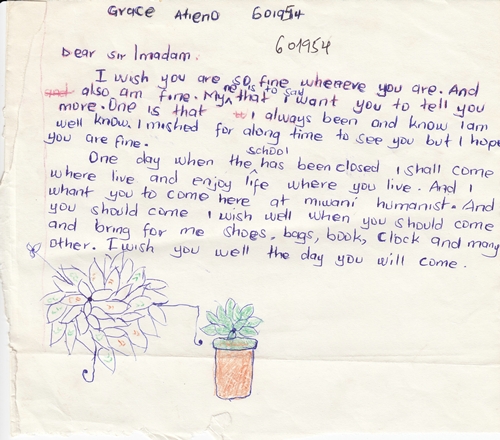 Grace Atieno 601954
601954
Dear Sir Imadam.
I wish you are so fine whereve you are. And
also am fine. My ne is to say that i want you to tell you
more. One is that I always been and know I am
well know. I mished for along time to see you but I hope
you are fine.
One day when the school has been closed I shall come
where live and enjoy life where you live. And I
whant you to come here at miwani humanist. And
you should come I wish well when you should come
and bring for me shoes, bags, book, clock and many
other. I wish you well the day you will come.